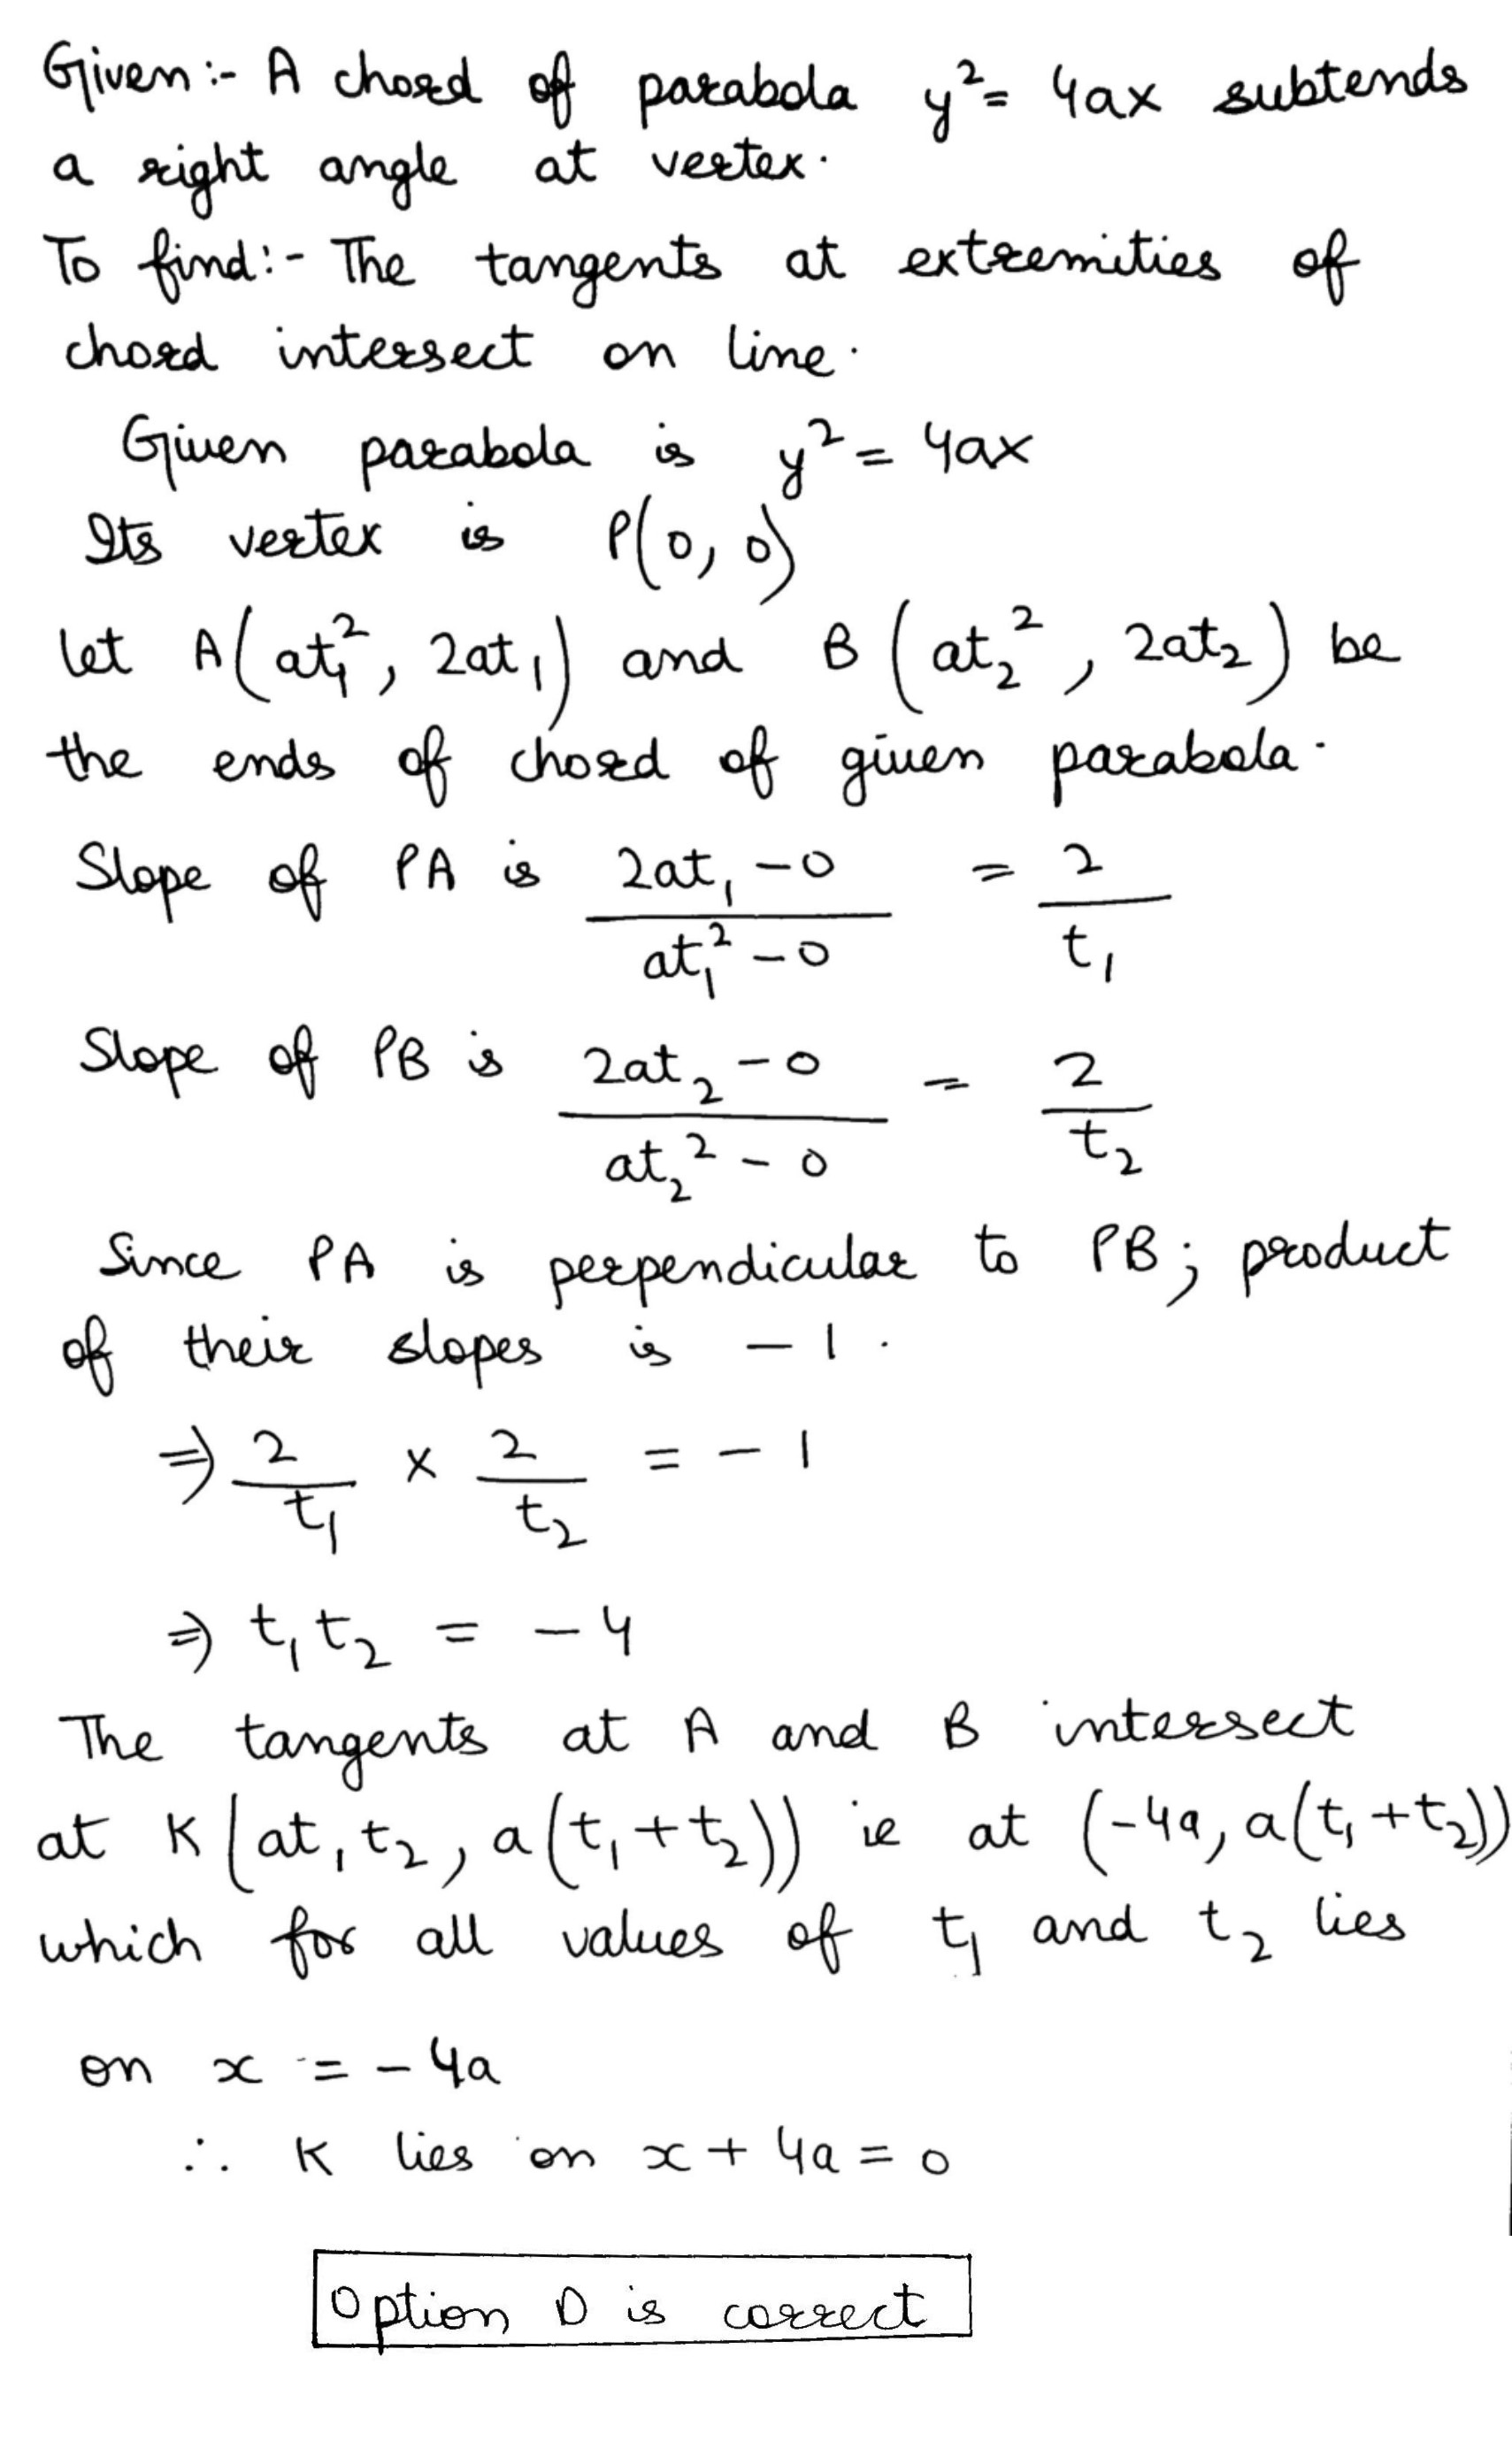 Given:- A chord of parabola y²= 4ax subtends
a right angle at vertex.
To find:- The tangents at extremities of
chord intersect on line.
Given parabola is y² = 4ax
Its vertex is P(0, 0)
Let A(at₁², 2at₁) and B(at₂², 2at₂) be
the ends of chord of given parabola.
Slope of PA is (2at₁-0)/(at₁²-0) = 2/t₁
Slope of PB is (2at₂-0)/(at₂²-0) = 2/t₂
Since PA is perpendicular to PB; product
of their slopes is -1.
⇒ 2/t₁ × 2/t₂ = -1
⇒ t₁t₂ = -4
The tangents at A and B intersect
at K(at₁t₂, a(t₁+t₂)) ie at (-4a, a(t₁+t₂))
which for all values of t₁ and t₂ lies
on x = -4a
∴ K lies on x + 4a = 0
Option D is correct